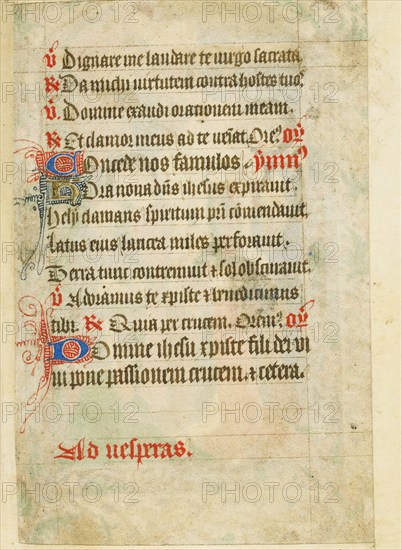 v Dignare me laudare te virgo sacrata
R Da michi virtutem contra hostes tuos.
v Domine exaudi orationem meam.
R Et clamor meus ad te veniat. Ore͂. or͂.
Concede nos famulos. ymn9
Hora nona dn͂s ihesus expiravit.
Hely clamans spiritum pr͂i comendavit.
Latus eius lancea miles perforavit.
Terra tunc contremuit & sol obscuravit.
v Adoramus te xpiste & benedicimus
tibi. R Quia per crucem. Orem9. or͂.
Domine ihesu xpiste fili dei vi
vi pone passionem crucem. & cetera.
Ad vesperas.